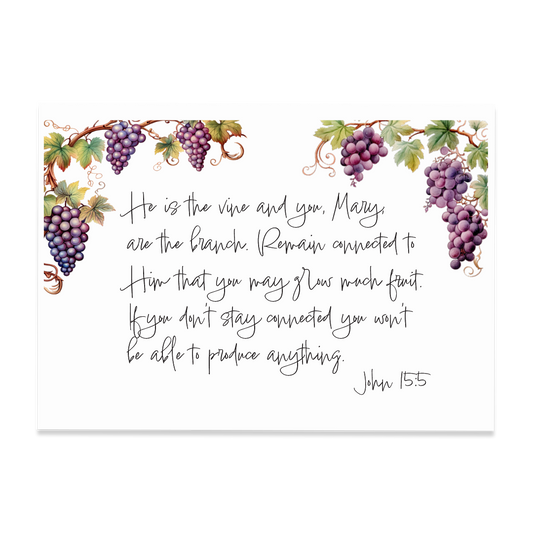 He is the vine and you, Mary,
are the branch. Remain connected to
Him that you may grow much fruit.
If you don't stay connected you won't
be able to produce anything.
John 15:5